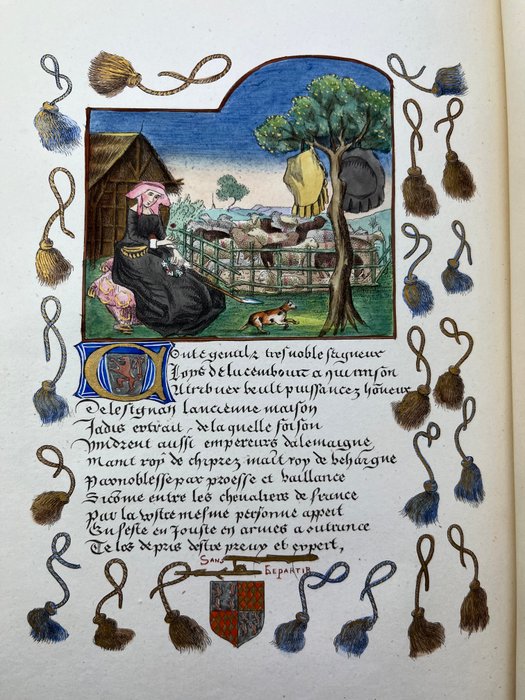 Conte gental z tres noble seigneur
Loys de lucembourc a qui mison
Atribuer veult puissance z honeur
De lesignan lancienne maison
Jadis extrait de la quelle foison
Vindrent aussi empereurs dalemaigne
Maint roy de chiprez maint roy de behaigne
Par noblesse par proesse et vaillance
Sicome entre les chevaliers de france
Par la vostre mesme personne appert
En feste en Jouste en armes a outrance
Te los depris destre preux et expert,
SANS
DEPARTIR